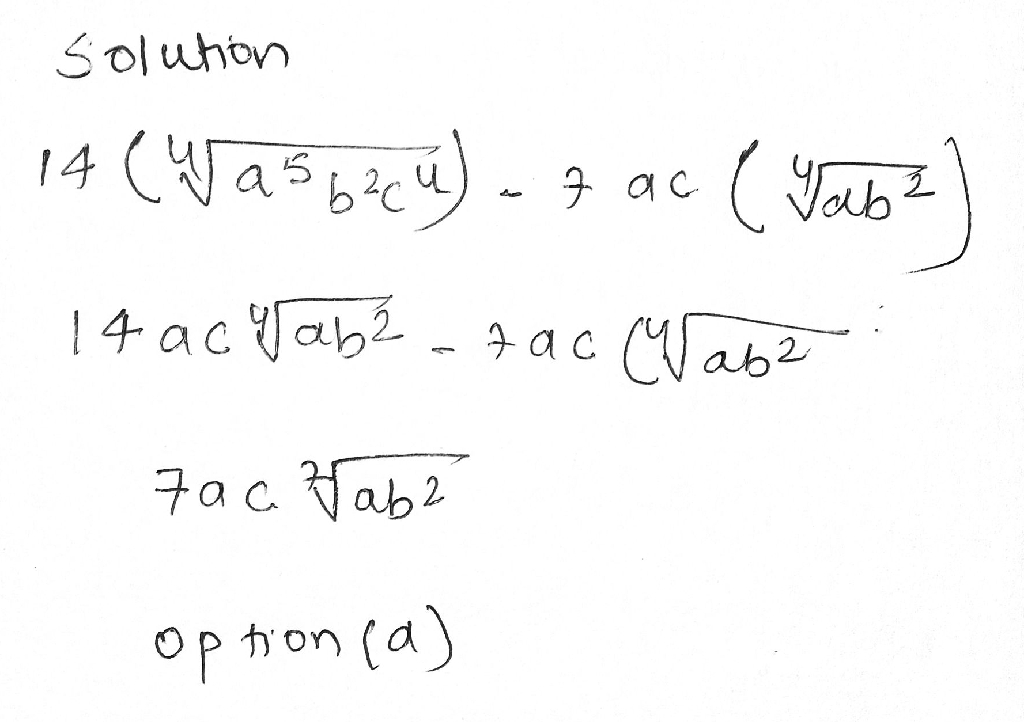 Solution
14 (∜a⁵b²c⁴) - 7 ac (∜ab²)
14 ac ∜ab² - 7ac (∜ab²
7ac ⁷√ab²
option (a)